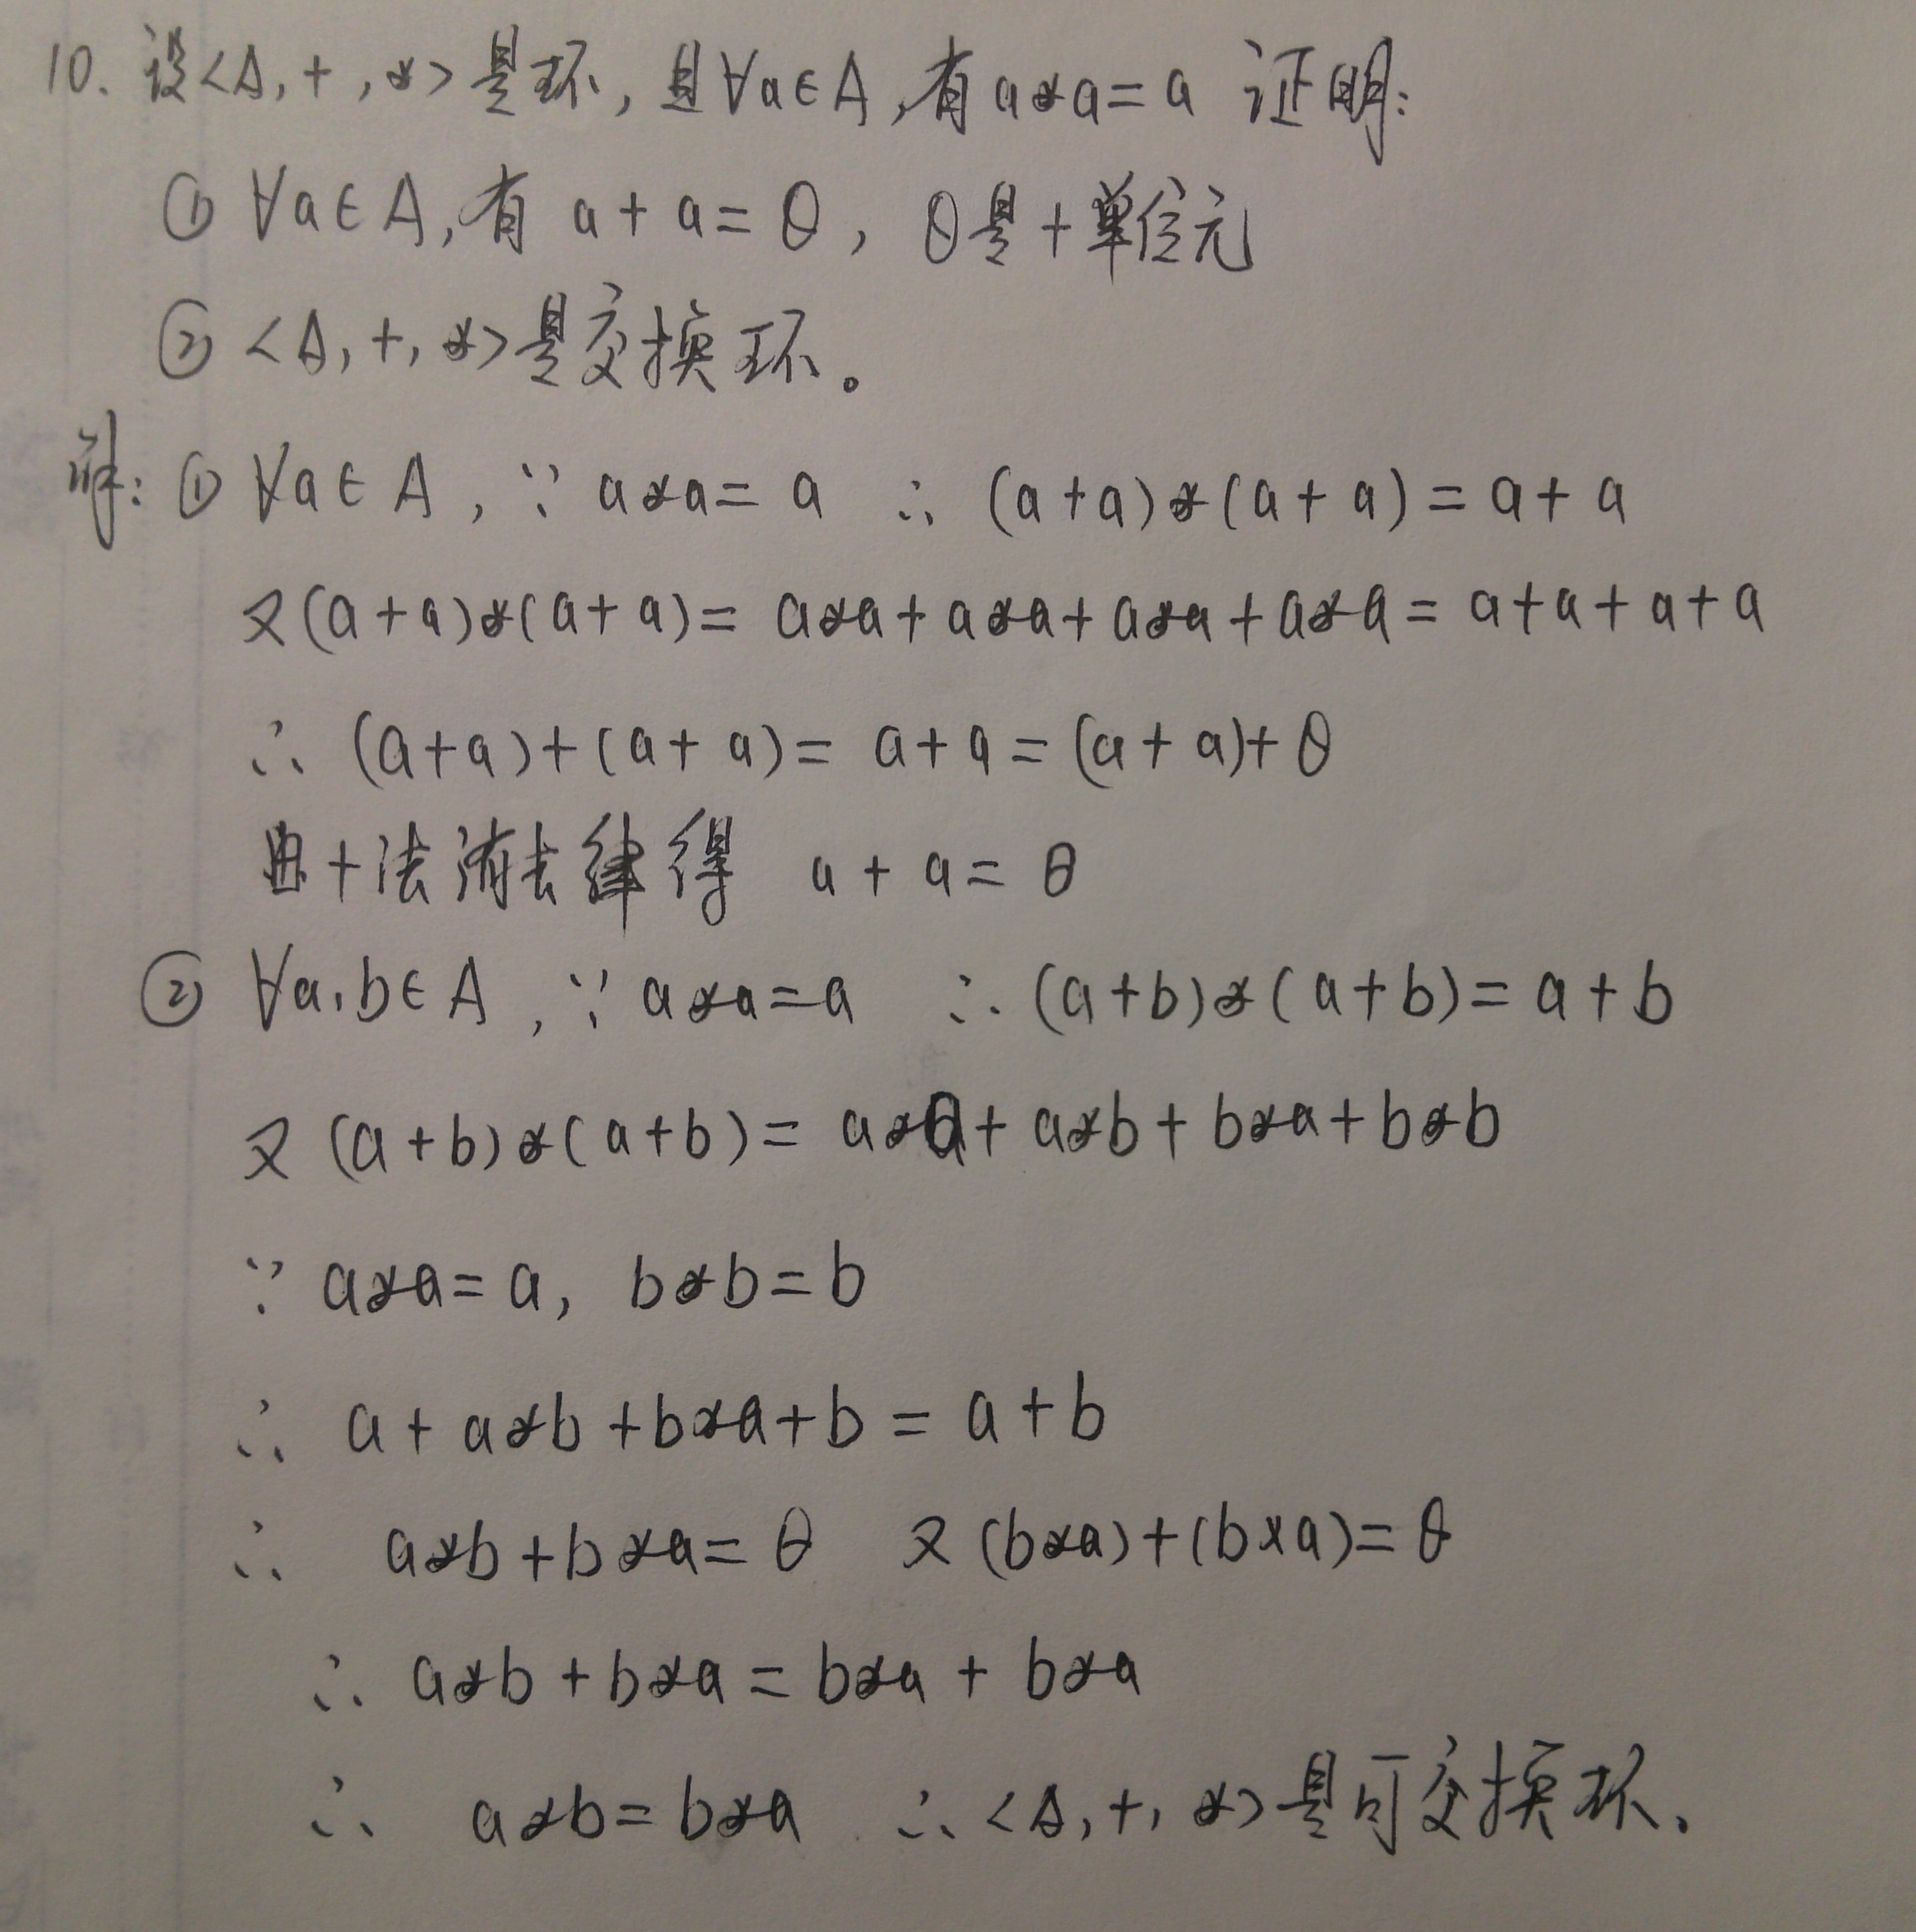 10. 设<A, +, *>是环, 且∀a∈A, 有a*a=a 证明:
① ∀a∈A, 有 a+a=θ, θ是+单位元
② <A, +, *>是交换环。
解: ① ∀a∈A, ∵ a*a=a ∴ (a+a)*(a+a)=a+a
又(a+a)*(a+a)= a*a+a*a+a*a+a*a=a+a+a+a
∴ (a+a)+(a+a)= a+a=(a+a)+θ
由+法消去律得 a+a=θ
② ∀a,b∈A, ∵ a*a=a ∴ (a+b)*(a+b)=a+b
又 (a+b)*(a+b)= a*a+a*b+b*a+b*b
∵ a*a=a, b*b=b
∴ a+a*b+b*a+b=a+b
∴ a*b+b*a=θ 又(b*a)+(b×a)=θ
∴ a*b+b*a=b*a+b*a
∴ a*b=b*a ∴<A, +, *>是可交换环.